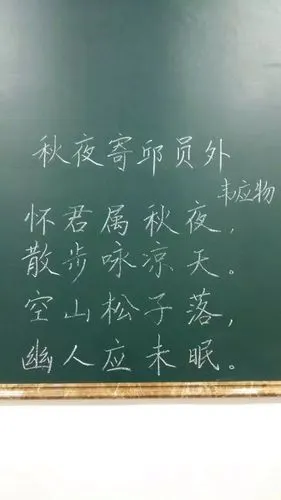 秋夜寄邱员外
韦应物
怀君属秋夜，
散步咏凉天。
空山松子落，
幽人应未眠。